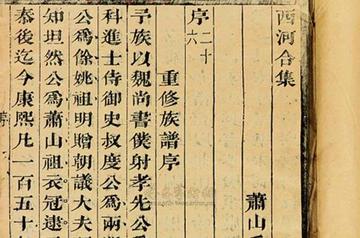 西河合集
序二十六
重修族譜序
蕭山
予族以魏尚書僕射孝先公為
科進士侍御史叔度公為兩
公為餘姚祖明贈朝議大夫
知坦然公為蕭山祖衣冠逮
秦後迄今康熙凡一百五十
序